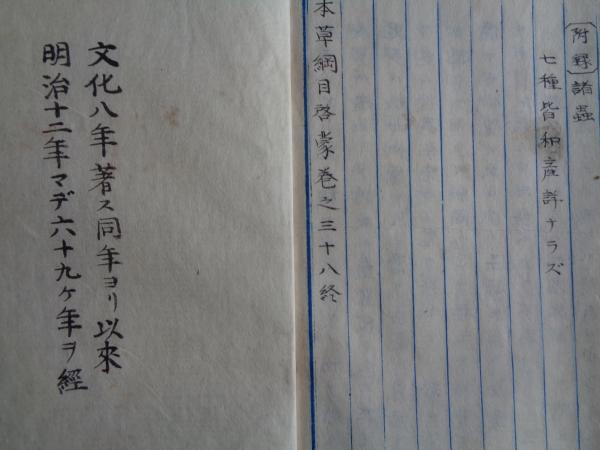 〔附録〕諸蟲
七種皆和産詳ナラズ
本草綱目啓蒙巻之三十八終
文化八年著ス同年ヨリ以來
明治十二年マデ六十九ケ年ヲ經